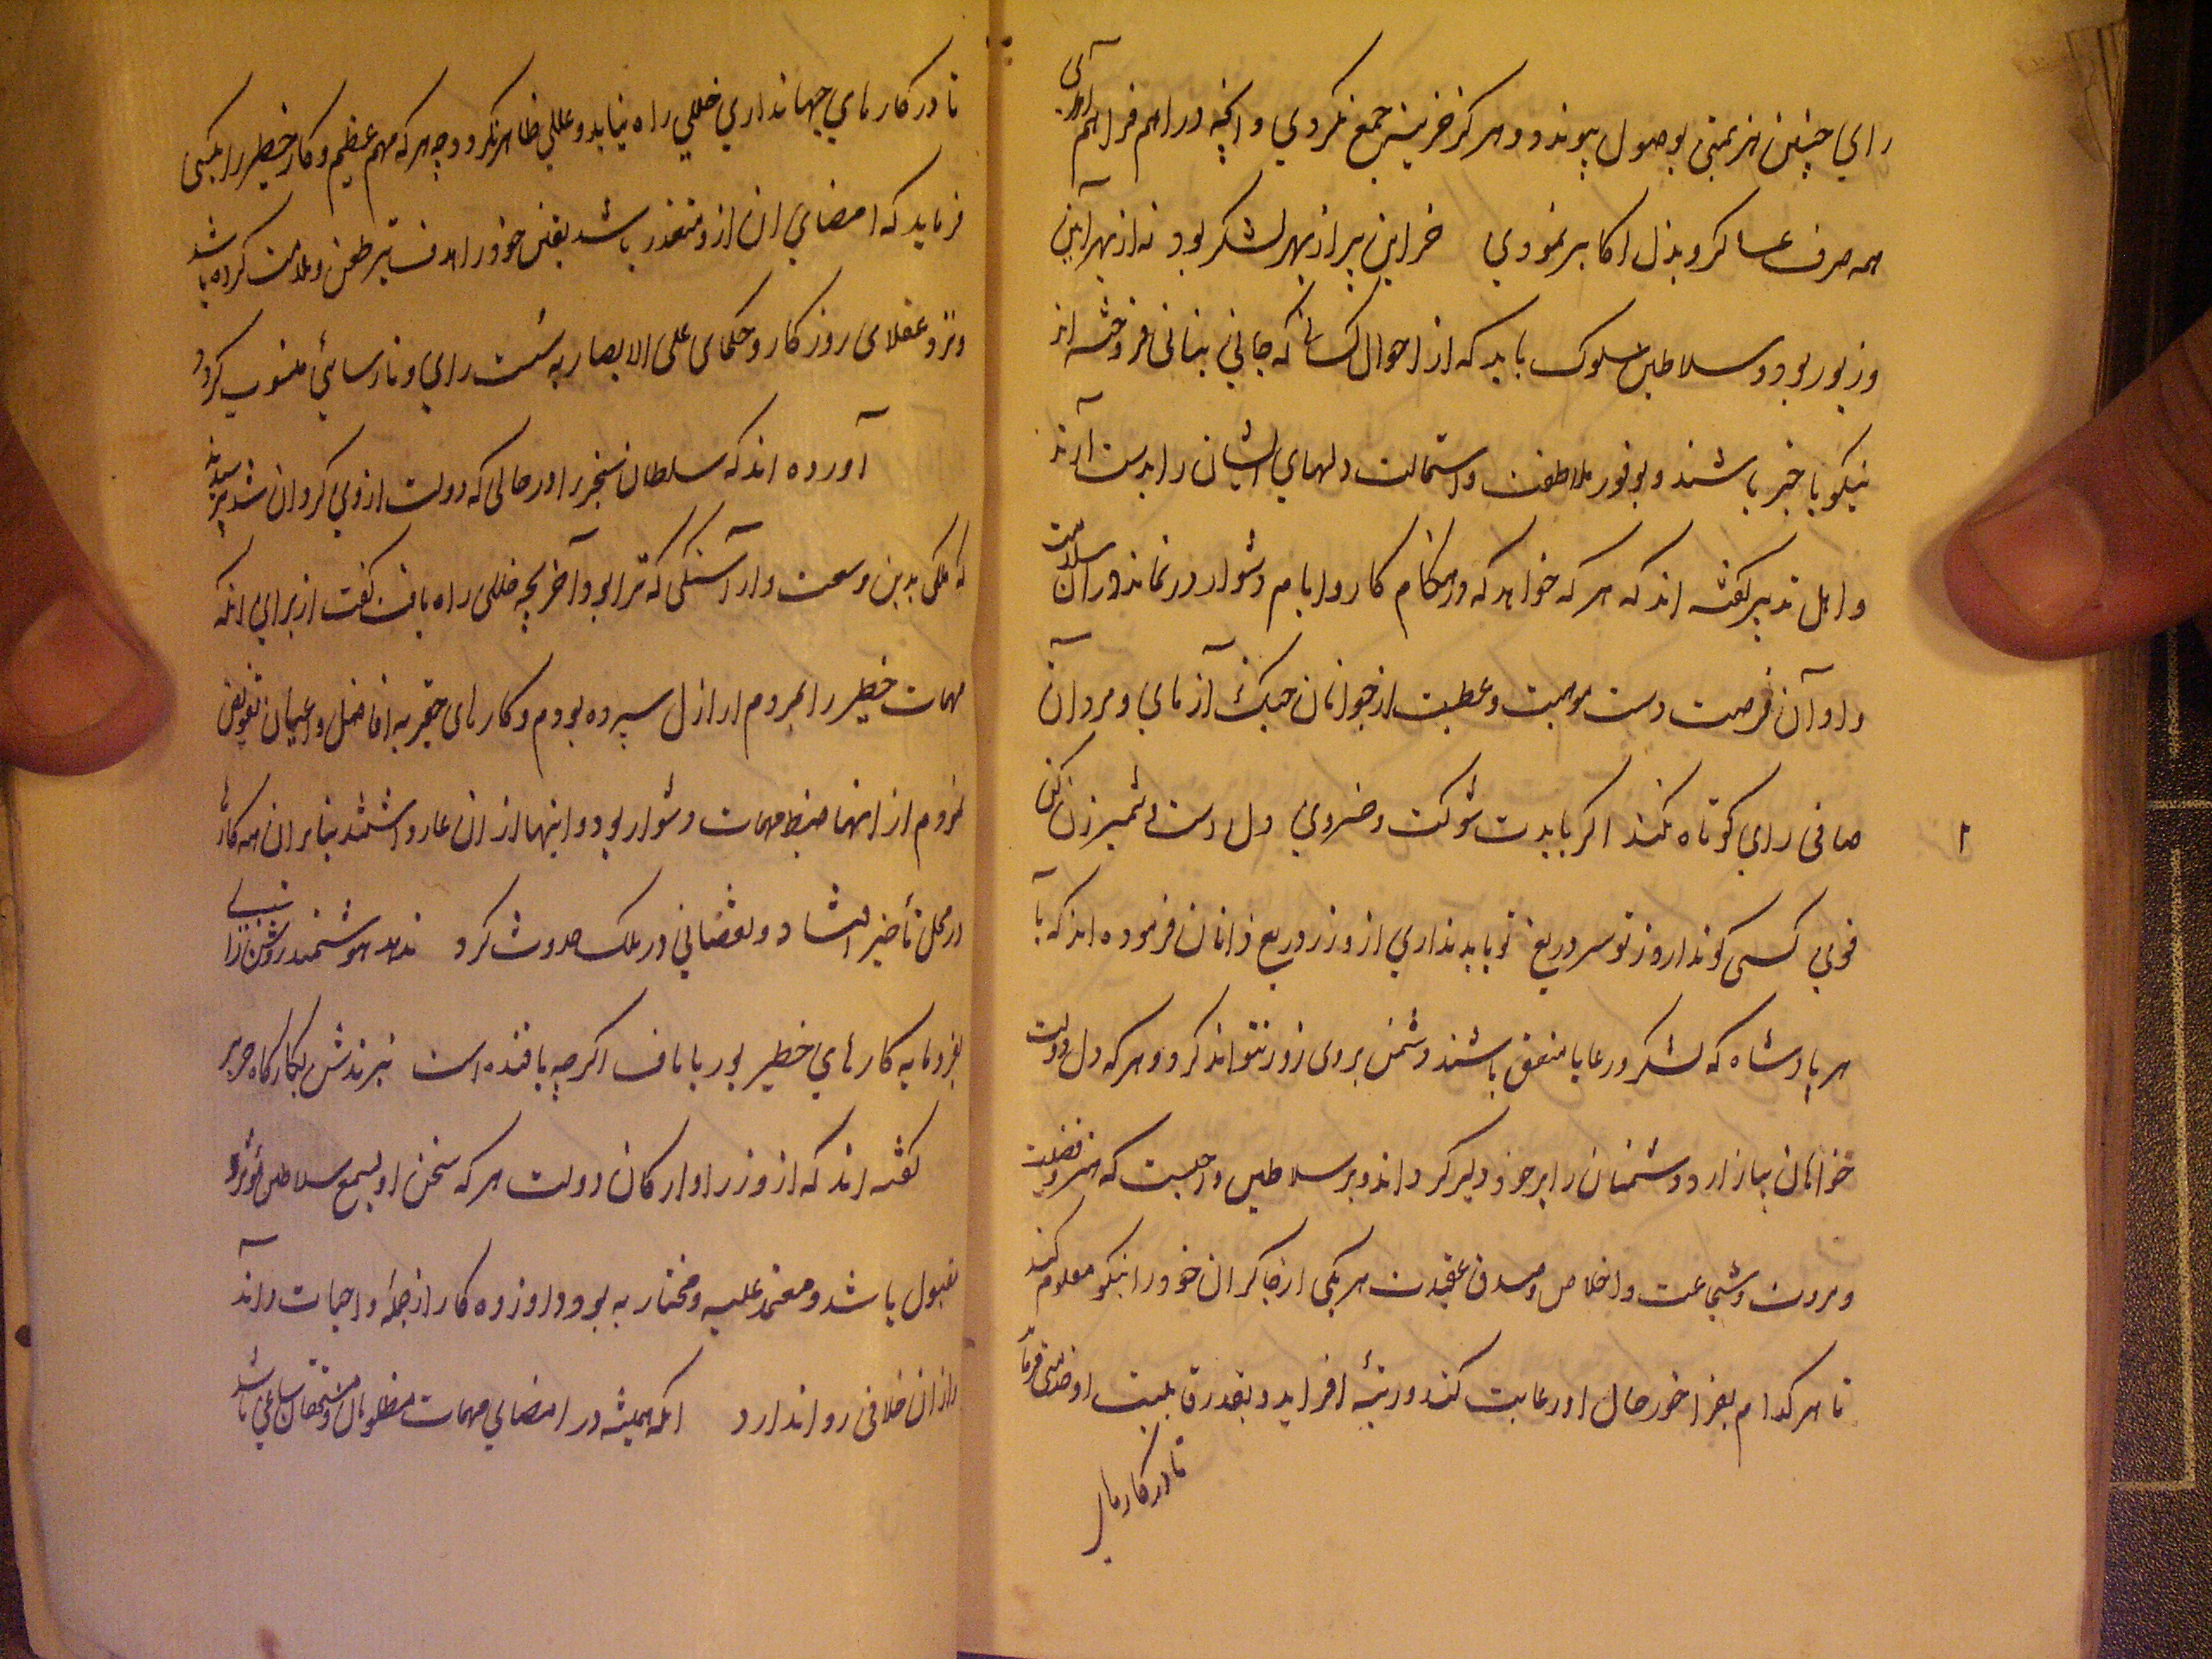 رای چنین هزیمتی بوصول پیوندد و هرگز خزینه جمع نکردی و آنچه دراهم فراهم آمدی
همه صرف عساکر و بذل اکابر نمودی خزاین پر از بهر لشکر بود نه از بهر آیین
و زیور بود و سلاطین سلوک باید که از احوال کسانی که جانی بنانی فروخته اند
نیکو باخبر باشند و بوفور ملاطفت و استمالت دلهای ایشان را بدست آرند
و اهل تدبیر گفته اند که هر که خواهد که در هنگام کار و ایام دشوار درنماند در آن سلامت
و او آن فرصت دست موهبت و عطیت از جوانان جنگ آزمای و مردان
صافی رای کوتاه نکند اگر بایدت شوکت و خسروی دل دست شمشیرزن کن
قوی کسی کو ندارد ز تو سر دریغ تو باید نداری ازو زر دریغ دانان فرموده اند که با
هر پادشاه که لشکر و رعایا متفق باشند دشمن بروی زور نتواند کرد و هر که دل دولت
خواهان بیازارد دشمنان را بر خود دلیر گرداند و بر سلاطین واجبست که هنر و فضیلت
و مروت و شجاعت و اخلاص و صدق عقیدت هر یکی از چاکران خود را نیکو معلوم کند
تا هر کدام بفراخور حال او رعایت کند و رتبهٔ افزاید و بقدر قابلیت او خدمتی فرماید
تا در کارهای
تا در کارهای جهانداری خللی راه نیابد و عللی ظاهر نگردد چه هر که مهم عظیم و کار خطیر را بکسی
فرماید که امضای آن ازو متعذر باشد یقین خود را هدف تیر طعن و ملامت کرده باشد
و نزد عقلای روزگار و حکمای علی الابصار به سست رای و نارسائی منسوب گردد
آورده اند که سلطان سنجر را در حالی که دولت ازوی گردان شد پرسیدند
که ملکی بدین وسعت و آراستگی که ترا بود آخر بچه خللی راه یافت گفت از برای آنکه
مهمات خطیر را بمردم اراذل سپرده بودم و کارهای حقیر به افاضل و اعیان تفویض
نمودم از آنها ضبط مهمات دشوار بود و اینها از آن عار داشتند بنابران همه کارها
در محل تأخیر افتاد و نقصانی در ملک حدوث کرد ندهد هوشمند روشن رای
بفرومایه کارهای خطیر بوریاباف اگرچه بافنده است نبرندش بکارگاه حریر
گفته اند که از وزرا و ارکان دولت هر که سخن او بسمع سلاطین مؤثر و
مقبول باشد و معتمد علیه و مختار به بود در روزه کار از جملهٔ واجبات داند
و از آن خلافی روا ندارد آنکه همیشه در امضای مهمات مظلومان و مستحقان ساعی باشد